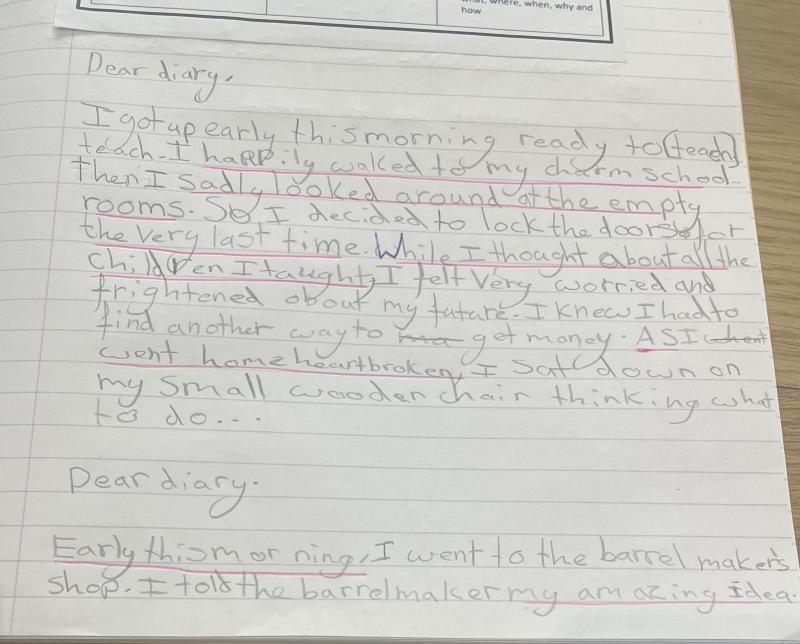 where, when, why and
how
Dear diary,
I got up early this morning ready to (teach)
teach. I happily walked to my charm school.
Then I sadly looked around at the empty
rooms. So I decided to lock the doors for
the very last time. While I thought about all the
children I taught, I felt very worried and
frightened about my future. I knew I had to
find another way to get money. AS I
went home heartbroken, I sat down on
my small wooden chair thinking what
to do...
Dear diary.
Early this morning, I went to the barrel maker's
shop. I told the barrel maker my amazing idea.